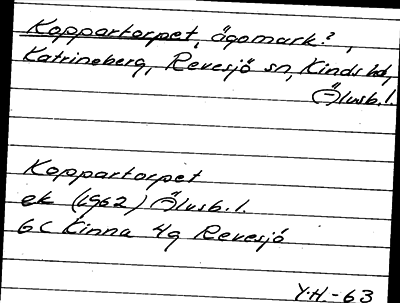 Koppartorpet, ägomark?,
Katrineberg, Revesjö sn, Kinds hd,
Älvsb. l.
Koppartorpet
ek (1962) Älvsb. l.
6C Kinna 4g Revesjö
Y.H.-63